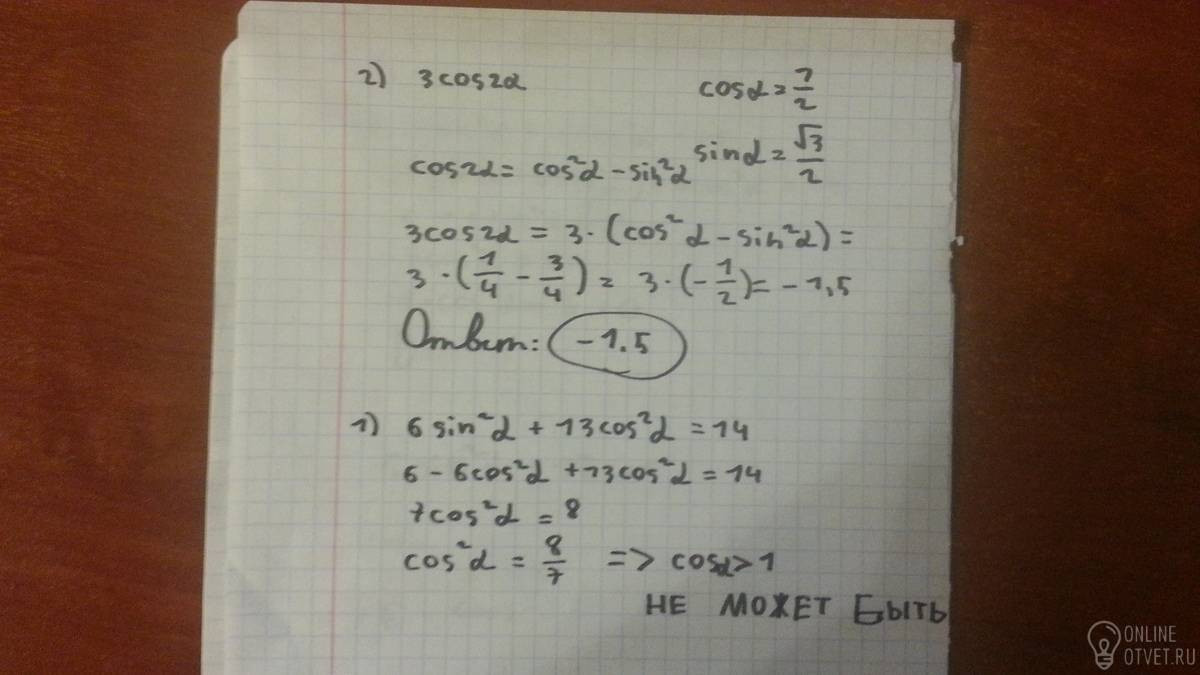 2) 3cos2α cosα = 1/2
cos2α = cos²α - sin²α sinα = √3/2
3cos2α = 3·(cos²α - sin²α) =
3·(1/4 - 3/4) = 3·(-1/2) = -1,5
Ответ: -1.5
1) 6sin²α + 13cos²α = 14
6 - 6cos²α + 13cos²α = 14
7cos²α = 8
cos²α = 8/7 => cosα > 1
НЕ МОЖЕТ БЫТЬ
ONLINE
OTVET.RU